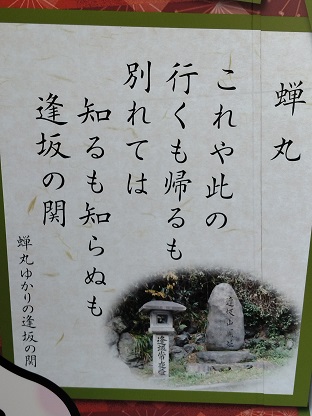 蝉丸
これや此の
行くも帰るも
別れては
知るも知らぬも
逢坂の関
蝉丸ゆかりの逢坂の関
逢坂山
逢坂常夜燈